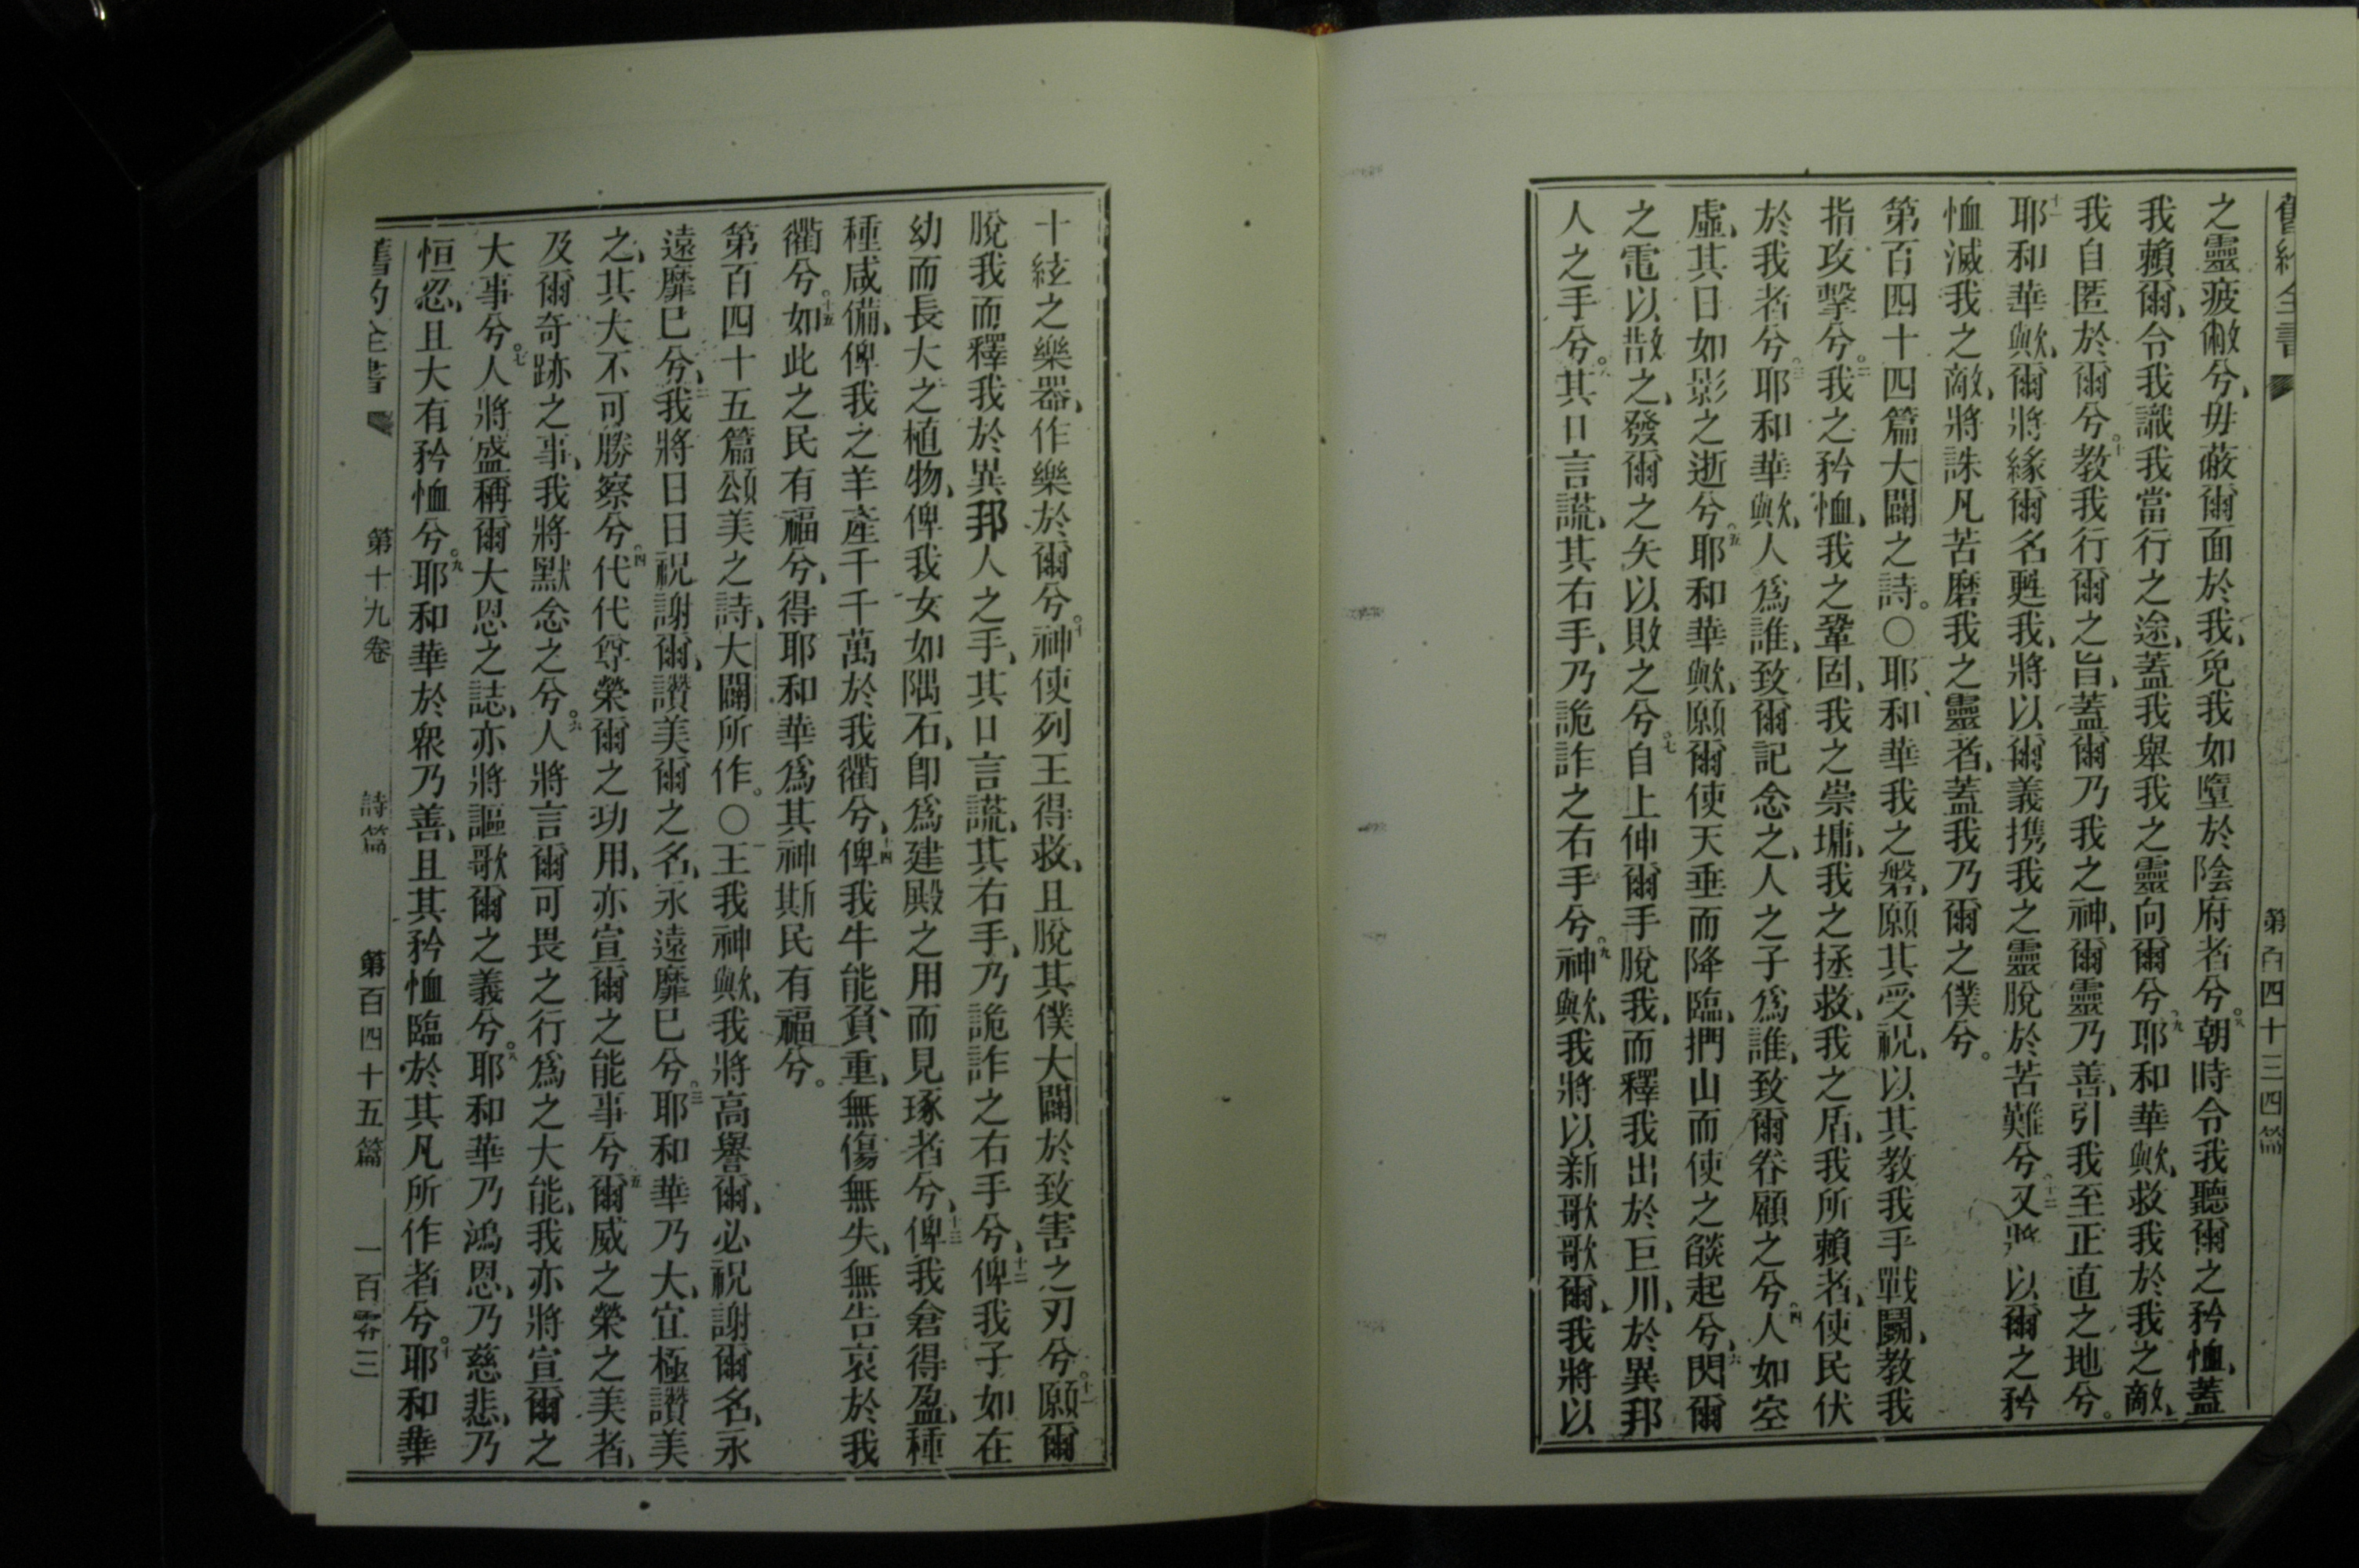 第百四十三四篇
之靈疲敝兮、毋蔽爾面於我、免我如墮於陰府者兮。八朝時令我聽爾之矜恤、蓋
我賴爾、令我識我當行之途、蓋我舉我之靈向爾兮。九耶和華歟、救我於我之敵、
我自匿於爾兮。十教我行爾之旨、蓋爾乃我之神、爾靈乃善、引我至正直之地兮。
十一耶和華歟、爾將緣爾名甦我、將以爾義携我之靈脫於苦難兮。十二又將以爾之矜
恤滅我之敵、將誅凡苦磨我之靈者、蓋我乃爾之僕兮。
第百四十四篇大闢之詩。〇耶和華我之磐、願其受祝、以其教我手戰鬪、教我
指攻擊兮。二我之矜恤、我之鞏固、我之崇墉、我之拯救、我之盾、我所賴者、使民伏
於我者兮。三耶和華歟、人爲誰、致爾記念之、人之子爲誰、致爾眷顧之兮。四人如空
虛、其日如影之逝兮。五耶和華歟、願爾使天垂而降臨、捫山而使之燄起兮、六閃爾
之電以散之、發爾之矢以敗之兮。七自上伸爾手脫我、而釋我出於巨川、於異邦
人之手兮。八其口言謊、其右手、乃詭詐之右手兮。九神歟、我將以新歌歌爾、我將以
十絃之樂器、作樂於爾兮。十神使列王得救、且脫其僕大闢於致害之刃兮。十一願爾
脫我而釋我於異邦人之手、其口言謊、其右手、乃詭詐之右手兮、十二俾我子如在
幼而長大之植物、俾我女如隅石、卽爲建殿之用而見琢者兮、十三俾我倉得盈、種
種咸備、俾我之羊產千千萬於我衢兮、十四俾我牛能負重、無傷無失、無告哀於我
衢兮。十五如此之民有福兮、得耶和華爲其神斯民有福兮。
第百四十五篇頌美之詩、大闢所作。〇一王我神歟、我將高譽爾、必祝謝爾名、永
遠靡已兮、二我將日日祝謝爾、讚美爾之名、永遠靡已兮。三耶和華乃大、宜極讚美
之、其大不可勝察兮。四代代尊榮爾之功用、亦宣爾之能事兮。五爾威之榮之美者、
及爾奇跡之事、我將默念之兮。六人將言爾可畏之行爲之大能、我亦將宣爾之
大事兮。七人將盛稱爾大恩之誌、亦將謳歌爾之義兮。八耶和華乃鴻恩、乃慈悲、乃
恒忍、且大有矜恤兮。九耶和華於衆乃善、且其矜恤臨於其凡所作者兮。十耶和華
第十九卷 詩篇 第百四十五篇 一百零三